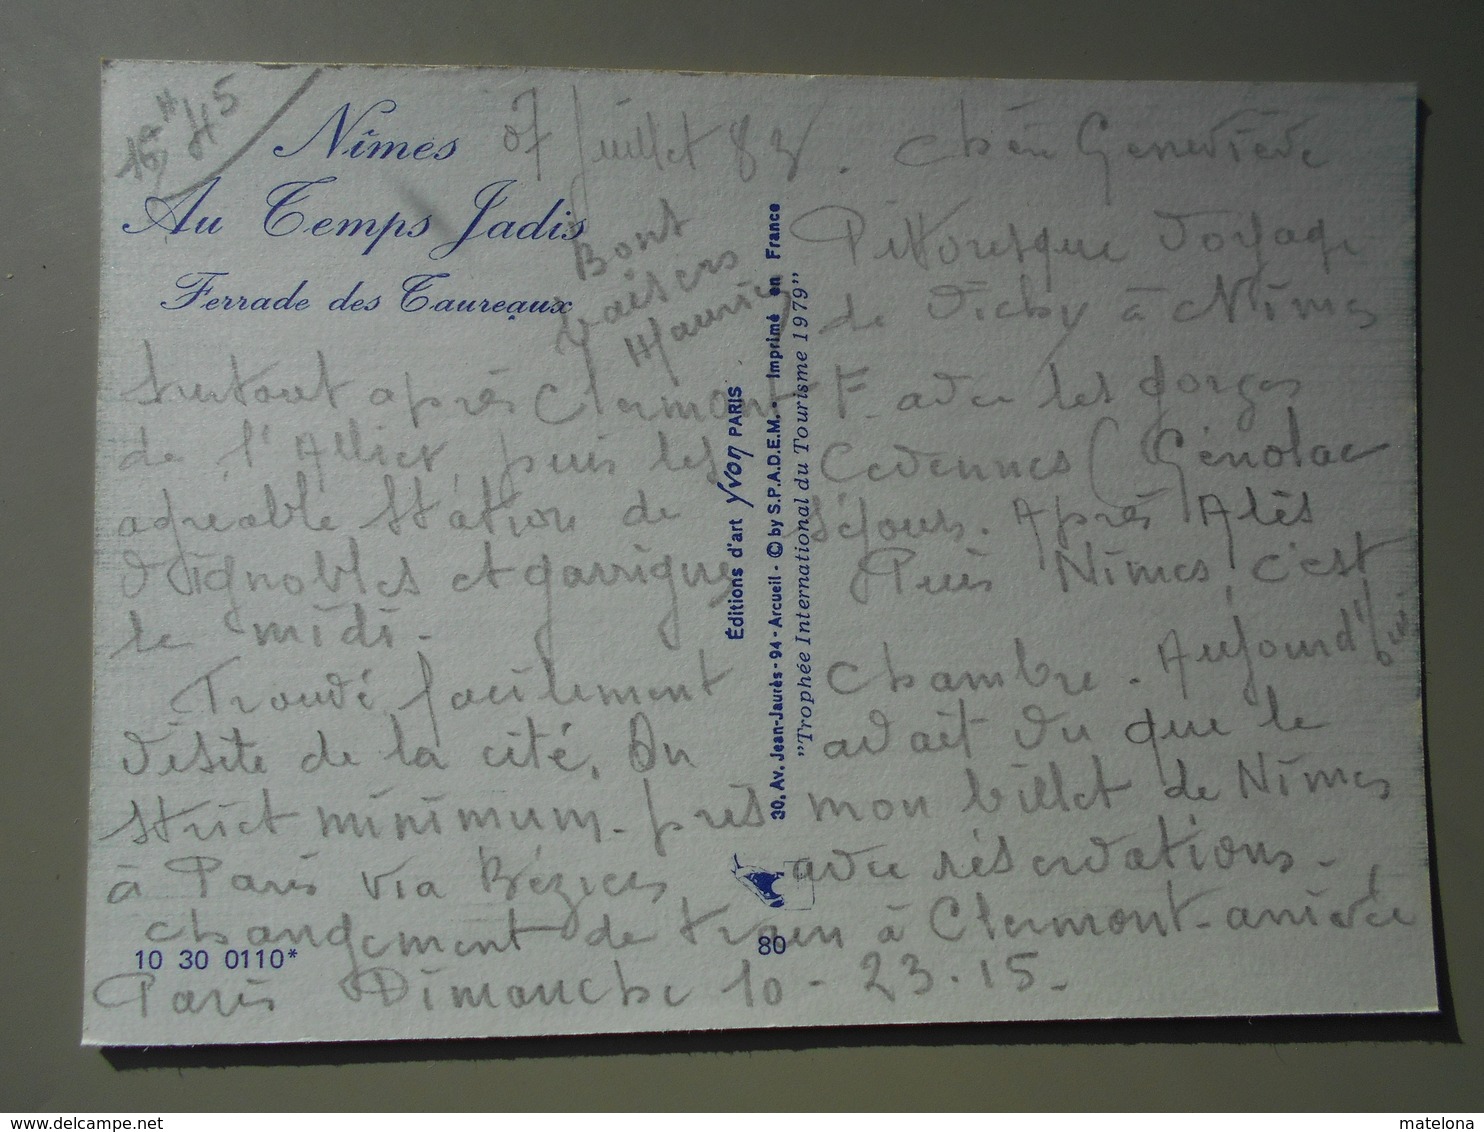 16 H 45
Nîmes 07 Juillet 83. Chère Geneviève
Au Temps Jadis
Ferrade des Taureaux
Pittoresque voyage
de Vichy à Nîmes
surtout après Clermont-F. avec les gorges
de l'Allier, puis les Cévennes (Génolac
agréable station de séjour. Après Alès
vignobles et garrigues Puis Nîmes, c'est
le midi.
Trouvé facilement chambre. Aujourd'hui
visite de la cité. On avait vu que le
strict minimum. pris mon billet de Nîmes
à Paris via Béziers avec réservations.
changement de train à Clermont-arrivée
Paris Dimanche 10 - 23.15.
Bons
baisers
Maurice
Éditions d'art Yvon PARIS
30, Av. Jean-Jaurès - 94 - Arcueil - © by S.P.A.D.E.M. - Imprimé en France
"Trophée International du Tourisme 1979"
10 30 0110*
80
matelona